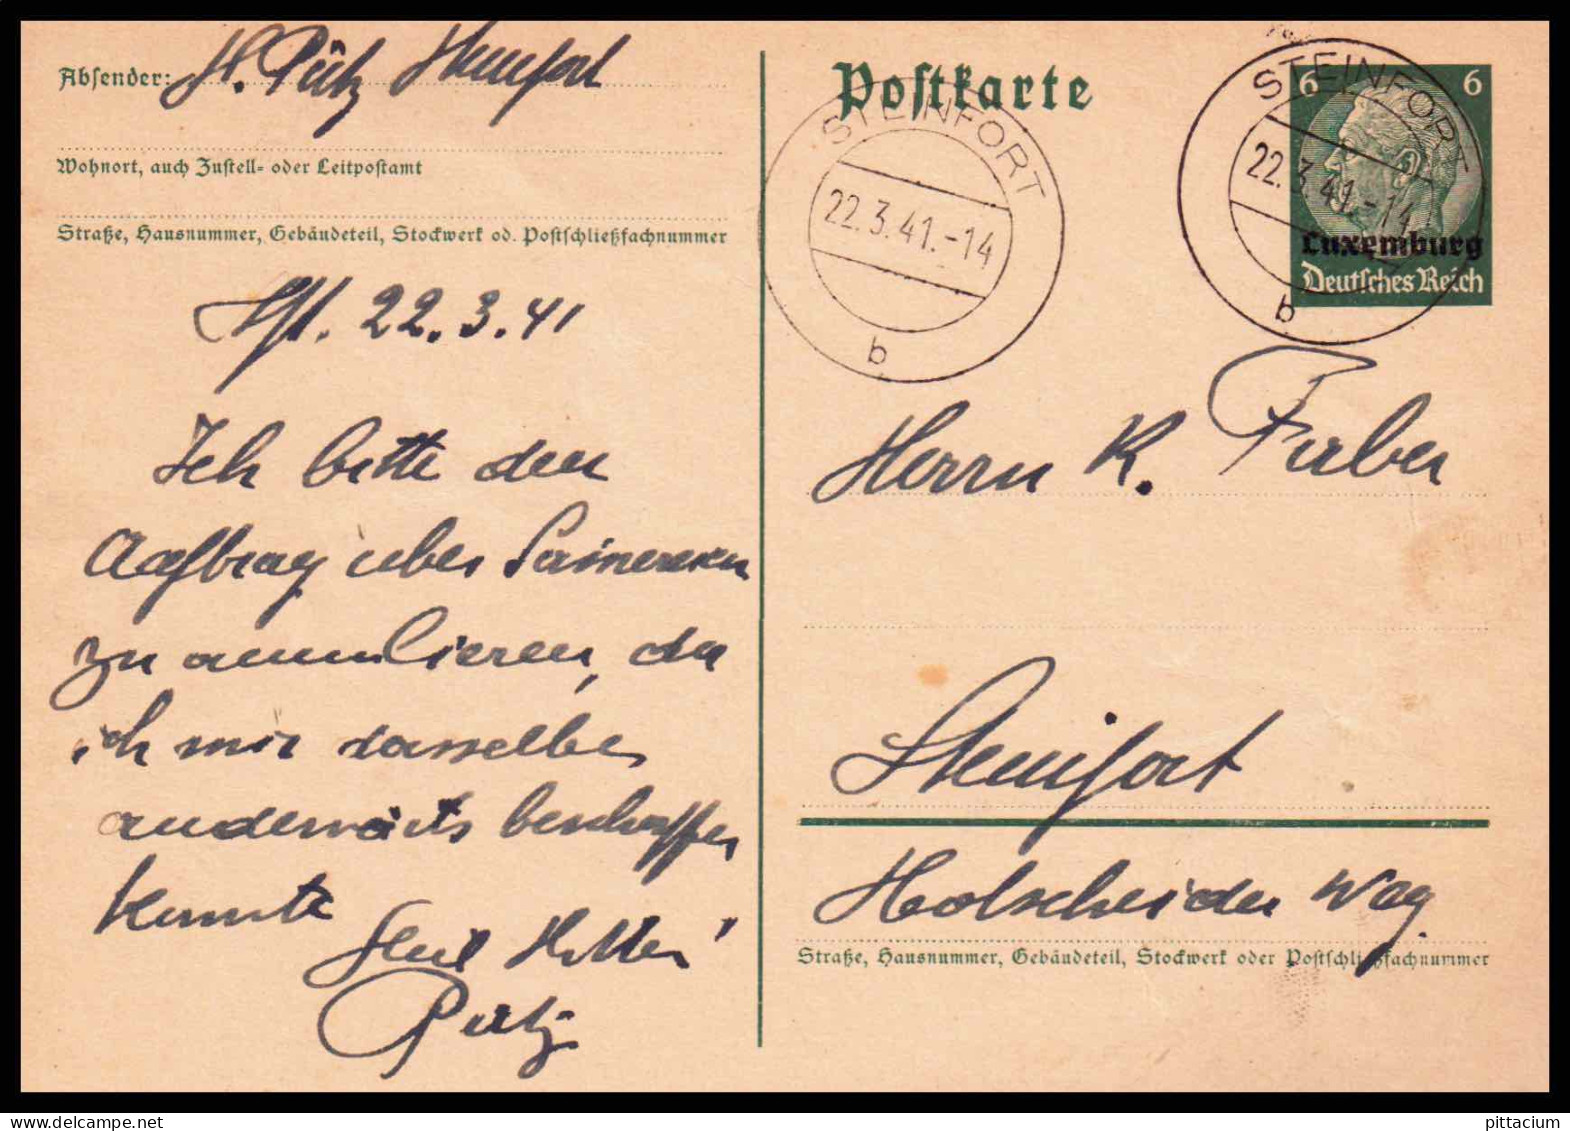 Absender: H. Pütz Steinfort
Wohnort, auch Zustell- oder Leitpostamt
Straße, Hausnummer, Gebäudeteil, Stockwerk od. Postschließfachnummer
Sft. 22.3.41
Ich bitte den
Auftrag über Sämereien
zu annulieren, da
ich mir dasselbe
anderwärts beschaffen
konnte
Heil Hitler!
Pütz
Postkarte
STEINFORT
22.3.41.-14
b
STEINFORT
22.3.41.-14
b
6 6
Luxemburg
Deutsches Reich
Herrn K. Ferber
Steinfort
Hobscheider Weg.
Straße, Hausnummer, Gebäudeteil, Stockwerk oder Postschließfachnummer
pittacium